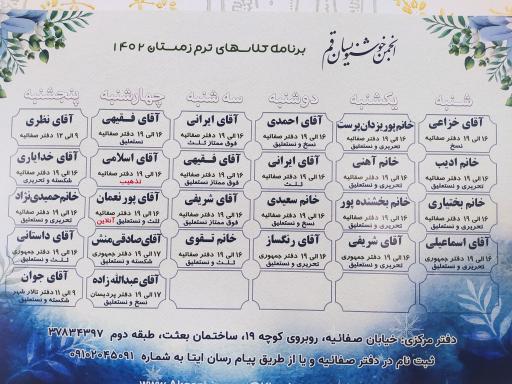 انجمن خوشنویسان قم
برنامه کلاسهای ترم زمستان ۱۴۰۲
شنبه
یکشنبه
دوشنبه
سه شنبه
چهارشنبه
پنجشنبه
آقای خزاعی
۱۶ الی ۱۹ دفتر صفائیه
نسخ
خانم پوریزدان‌پرست
۱۶ الی ۱۹ دفتر صفائیه
تحریری و نستعلیق
آقای احمدی
۱۶ الی ۱۹ دفتر صفائیه
نسخ و نستعلیق
آقای ایرانی
۱۶ الی ۱۹ دفتر صفائیه
فوق ممتاز ثلث
آقای فقیهی
۱۶ الی ۱۹ دفتر صفائیه
نستعلیق
آقای نظری
۹ الی ۱۲ دفتر صفائیه
نستعلیق
خانم ادیب
۱۶ الی ۱۹ دفتر صفائیه
تحریری و نستعلیق
خانم آهنی
۱۶ الی ۱۹ دفتر صفائیه
تحریری و نستعلیق
آقای ایرانی
۱۶ الی ۱۹ دفتر صفائیه
ثلث
آقای فقیهی
۱۶ الی ۱۹ دفتر صفائیه
فوق ممتاز نستعلیق
آقای اسلامی
۱۶ الی ۱۹ دفتر صفائیه
تذهیب
آقای خدایاری
۱۶ الی ۱۹ دفتر صفائیه
شکسته و تحریری
خانم بختیاری
۱۶ الی ۱۹ دفتر صفائیه
تحریری و نستعلیق
خانم بخشنده پور
۱۶ الی ۱۹ دفتر صفائیه
تحریری و نستعلیق
خانم سعیدی
۱۶ الی ۱۹ دفتر صفائیه
نستعلیق
آقای شریفی
۱۶ الی ۱۹ دفتر صفائیه
نستعلیق
آقای پور نعمان
۱۶ الی ۱۹ دفتر صفائیه
ثلث و نستعلیق آنلاین
خانم حمیدی‌نژاد
۱۶ الی ۱۹ دفتر صفائیه
تحریری و نستعلیق
آقای اسماعیلی
۱۶ الی ۱۹ دفتر جمهوری
تحریری و نستعلیق
آقای شریفی
۱۶ الی ۱۹ دفتر جمهوری
تحریری و نستعلیق
آقای رنگساز
۱۶ الی ۱۹ دفتر جمهوری
تحریری و نستعلیق
خانم تقوی
۱۶ الی ۱۹ دفتر صفائیه
ثلث و نستعلیق
آقای صادقی‌منش
۱۷ الی ۱۹ دفتر جمهوری
شکسته و نستعلیق
آقای داستانی
۱۶ الی ۱۹ دفتر جمهوری
ثلث و نستعلیق
آقای عبدالله زاده
۱۷ الی ۱۹ دفتر پردیسان
نسخ و نستعلیق
آقای جوان
۹ الی ۱۱ دفتر تالار شهر
شکسته و نستعلیق
دفتر مرکزی: خیابان صفائیه، روبروی کوچه ۱۹، ساختمان بعثت، طبقه دوم ۳۷۸۳۴۳۹۷
ثبت نام در دفتر صفائیه و یا از طریق پیام رسان ایتا به شماره ۰۹۱۰۲۰۴۵۰۹۱